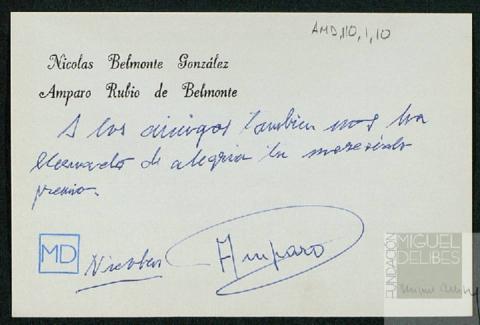 AMD,110,1,10
Nicolas Belmonte González
Amparo Rubio de Belmonte
A los amigos tambien nos ha
llenado de alegria tu merecido
premio.
MD
Nicolas
Amparo
FUNDACIÓN
MIGUEL
DELIBES